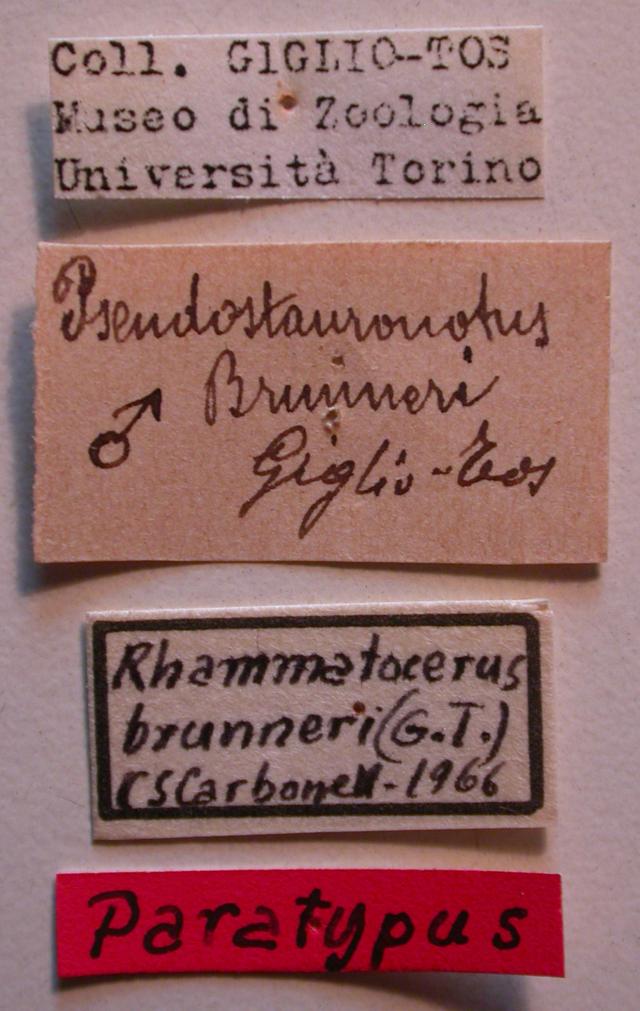 Coll. GIGLIO-TOS
Museo di Zoologia
Università Torino
Pseudostauronotus
Brunneri
♂
Giglio-Tos
Rhammatocerus
brunneri (G.T.)
CSCarbonell-1966
Paratypus